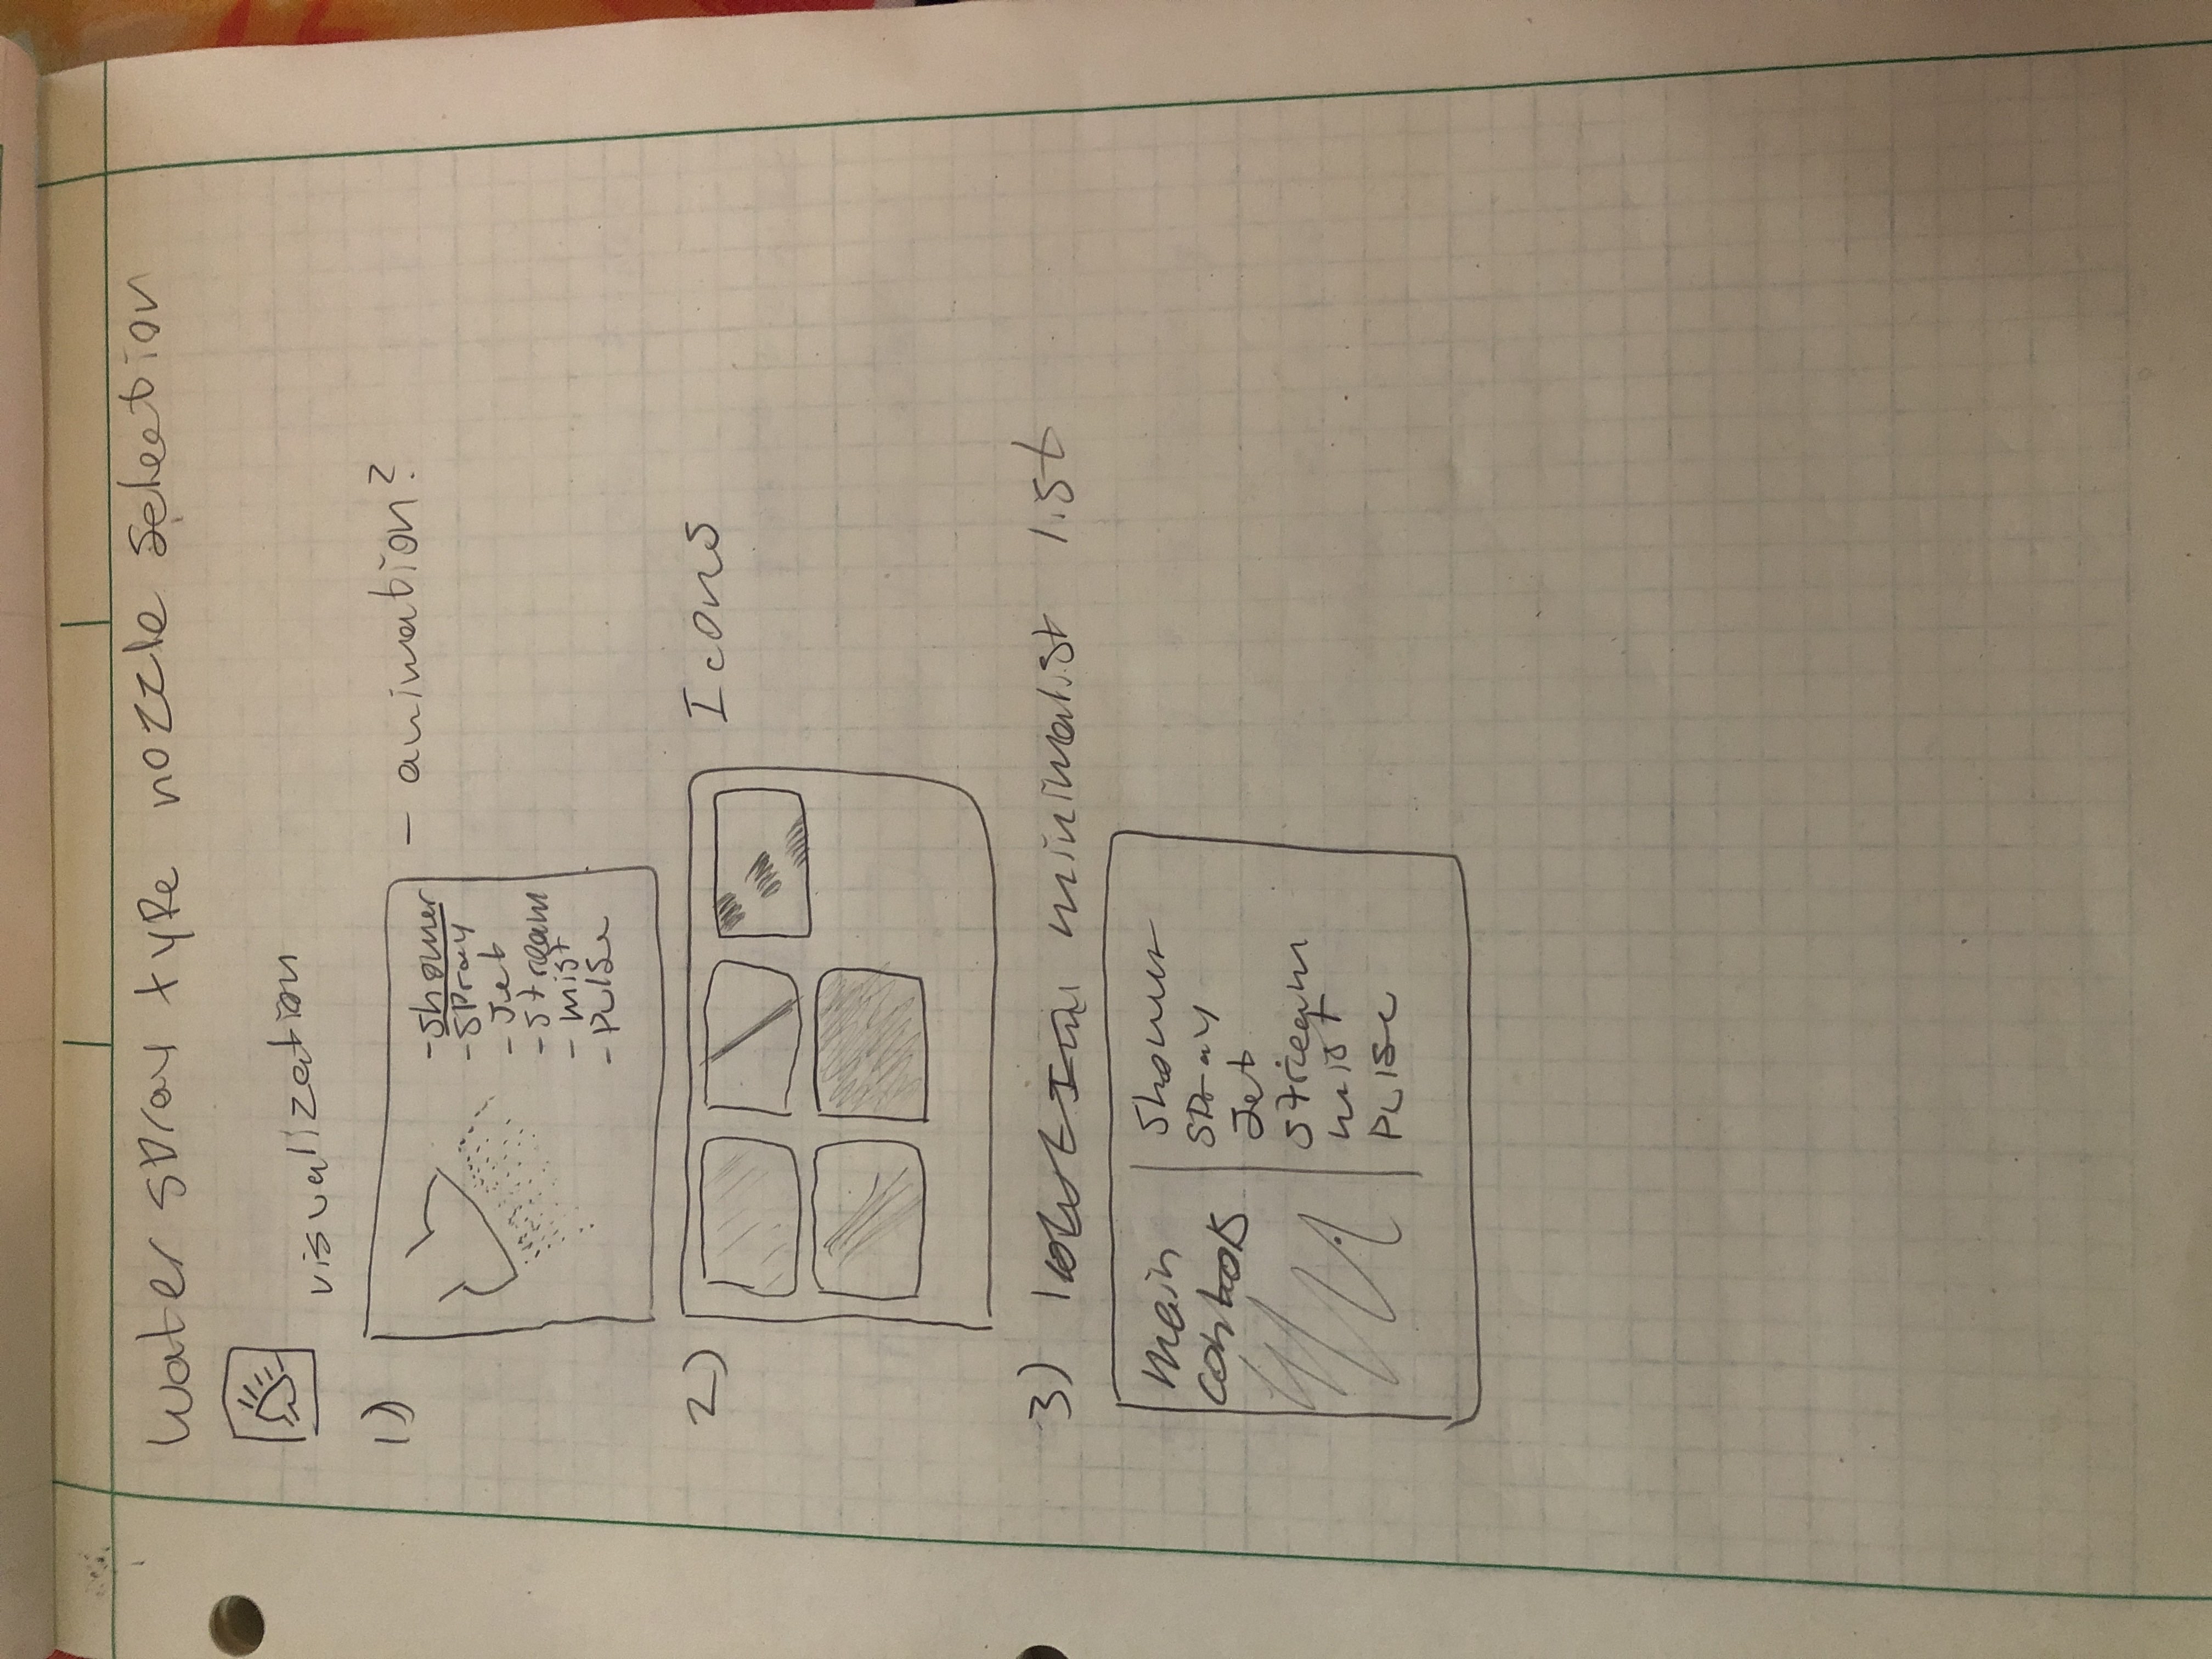 Water spray type nozzle selection
visualization
1)
- animation?
- Shower
- Spray
- Jet
- Stream
- mist
- Pulse
2)
Icons
3) minimalist list
main
controls
Shower
Spray
Jet
Stream
mist
Pulse